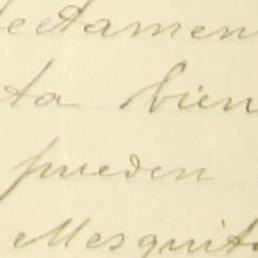 ectamen
ta bien
pueden
Mesquit